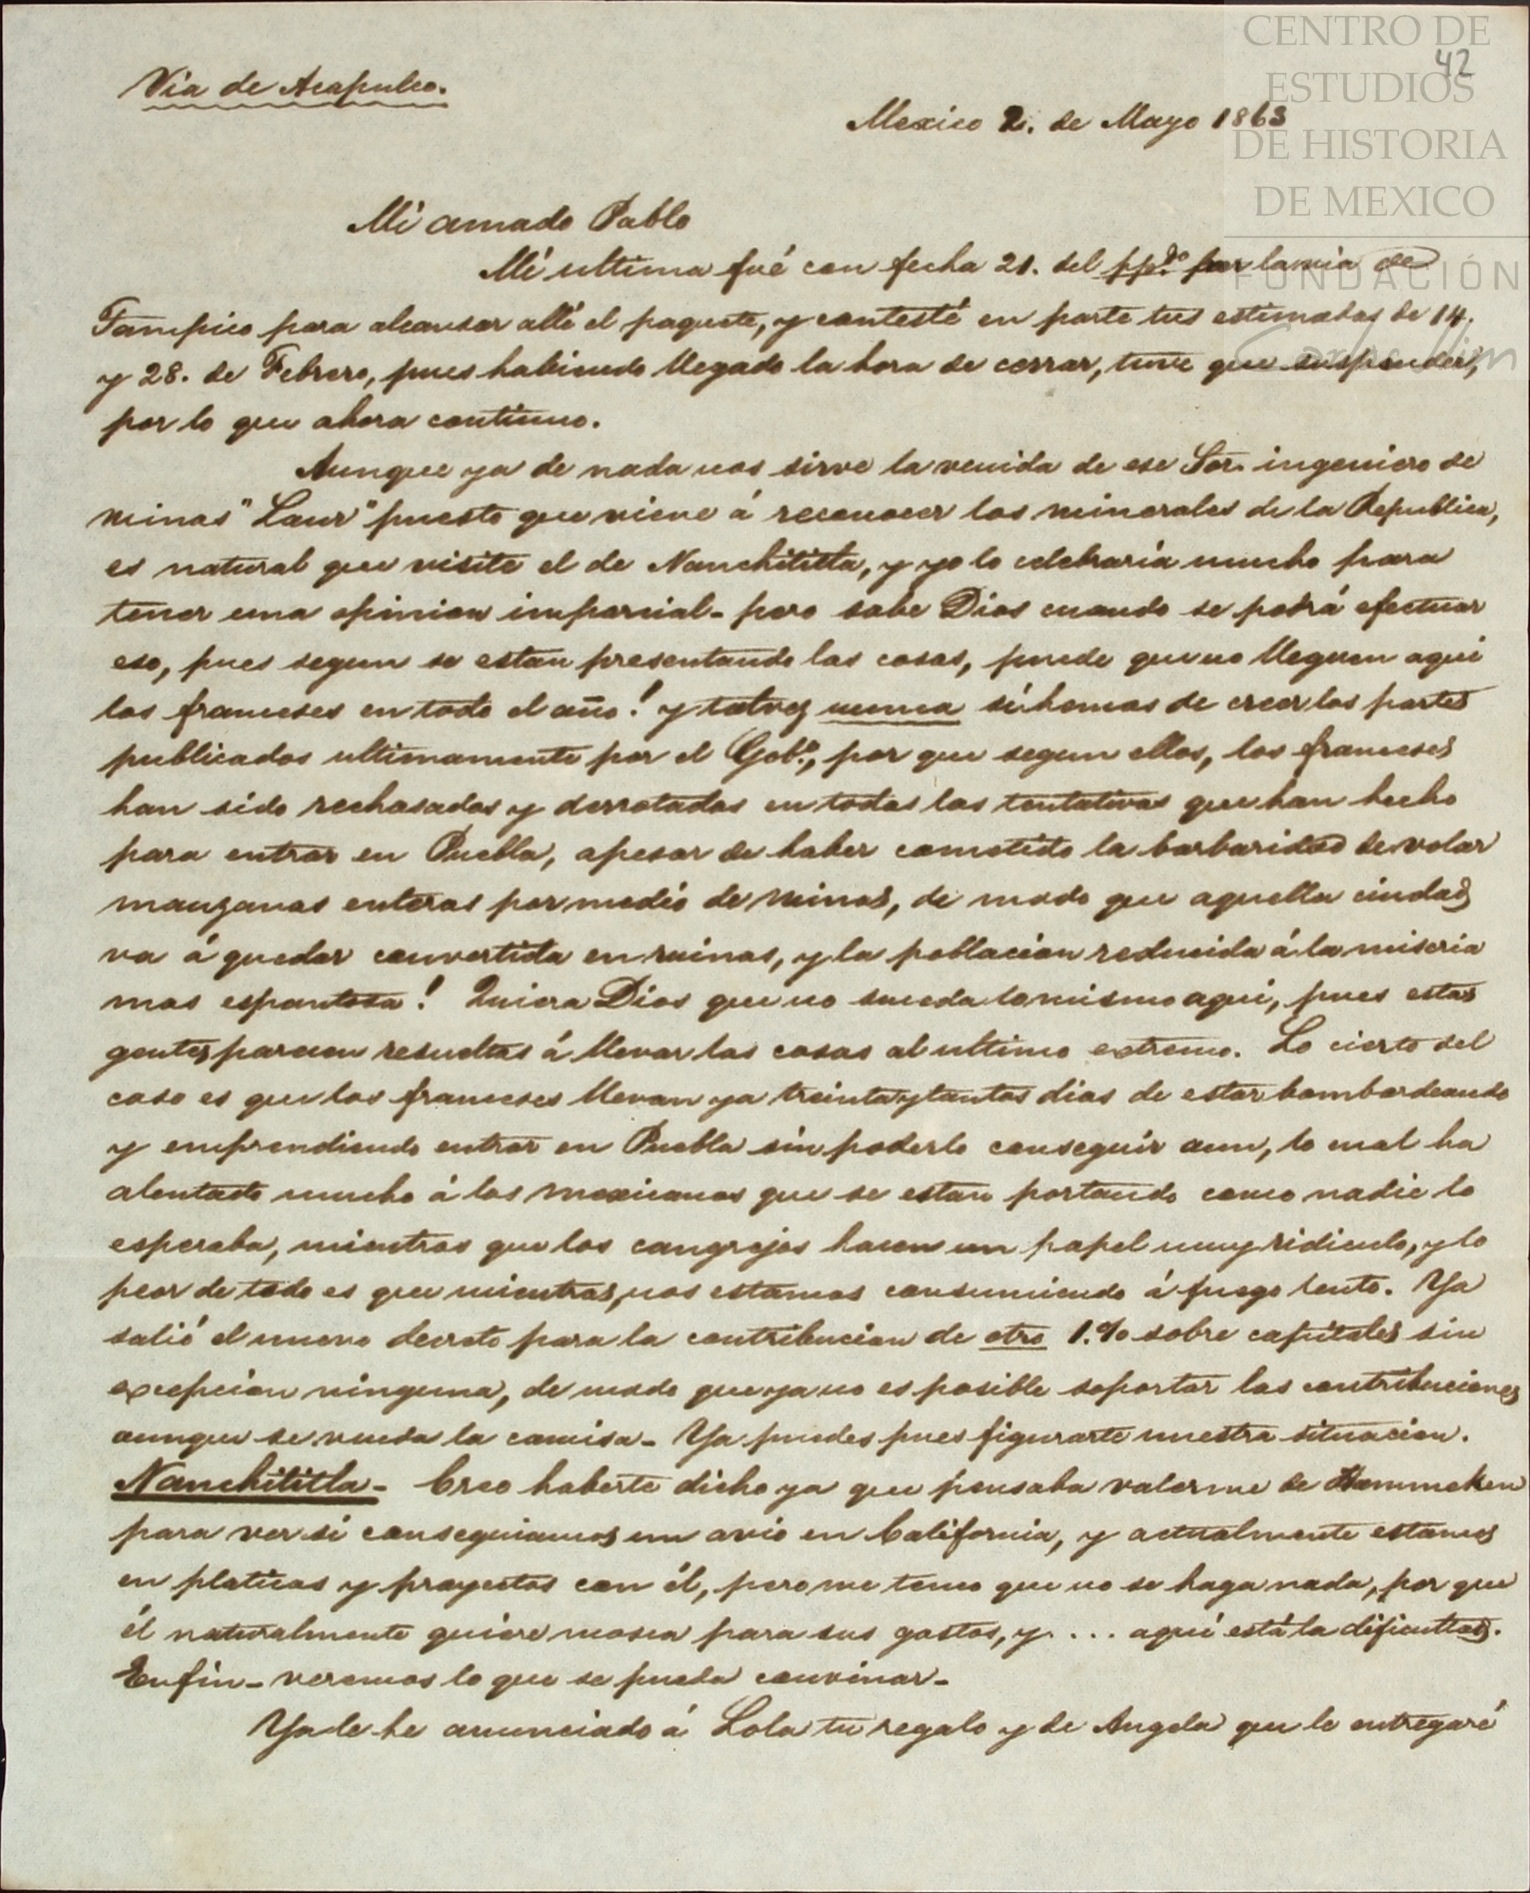 CENTRO DE
ESTUDIOS
DE HISTORIA
DE MEXICO
FUNDACIÓN
Carlos Slim
42
Via de Acapulco.
Mexico 2. de Mayo 1863
Mi amado Pablo
Mi ultima fué con fecha 21. del pp.do por la via de
Tampico para alcansar allí el paquete, y contesté en parte tus estimadas de 14.
y 28. de Febrero, pues habiendo llegado la hora de cerrar, tuve que suspender,
por lo que ahora continuo.
Aunque ya de nada nos sirve la venida de ese Sor. ingeniero de
minas "Laur" puesto que viene á reconocer los minerales de la Republica,
es natural que visite el de Nanchititla, y yo lo celebraría mucho para
tener una opinion imparcial - pero sabe Dios cuando se podrá efectuar
eso, pues segun se estan presentando las cosas, puede que no lleguen aqui
los franceses en todo el año! y talvez nunca si hemos de creer los partes
publicados ultimamente por el Gob.o, por que segun ellos, los franceses
han sido rechasados y derrotados en todas las tentativas que han hecho
para entrar en Puebla, apesar de haber cometido la barbaridad de volar
manzanas enteras por medio de minas, de modo que aquella ciudad
va á quedar convertida en ruinas, y la poblacion reducida á la miseria
mas espantosa! Quiera Dios que no suceda lo mismo aqui, pues estas
gentes parecen resueltas á llevar las cosas al ultimo extremo. Lo cierto del
caso es que los franceses llevan ya treinta y tantos dias de estar bombardeando
y emprendiendo entrar en Puebla sin poderlo conseguir aun, lo cual ha
alentado mucho á los mexicanos que se estan portando como nadie lo
esperaba, mientras que los cangrejos hacen un papel muy ridiculo, y lo
peor de todo es que mientras, nos estamos consumiendo á fuego lento. Ya
salió el nuevo decreto para la contribucion de otro 1.% sobre capitales sin
excepcion ninguna, de modo que ya no es posible soportar las contribuciones
aunque se venda la camisa - Ya puedes pues figurarte nuestra situacion.
Nanchititla - Creo haberte dicho ya que pensaba valerme de Hammeken
para ver si conseguiamos un avio en California, y actualmente estamos
en platicas y proyectos con él, pero me temo que no se haga nada, por que
él naturalmente quiere mosca para sus gastos, y . . . aquí está la dificultad.
Enfin - veremos lo que se pueda convinar -
Ya le he anunciado á Lola tu regalo y de Angela que le entregaré